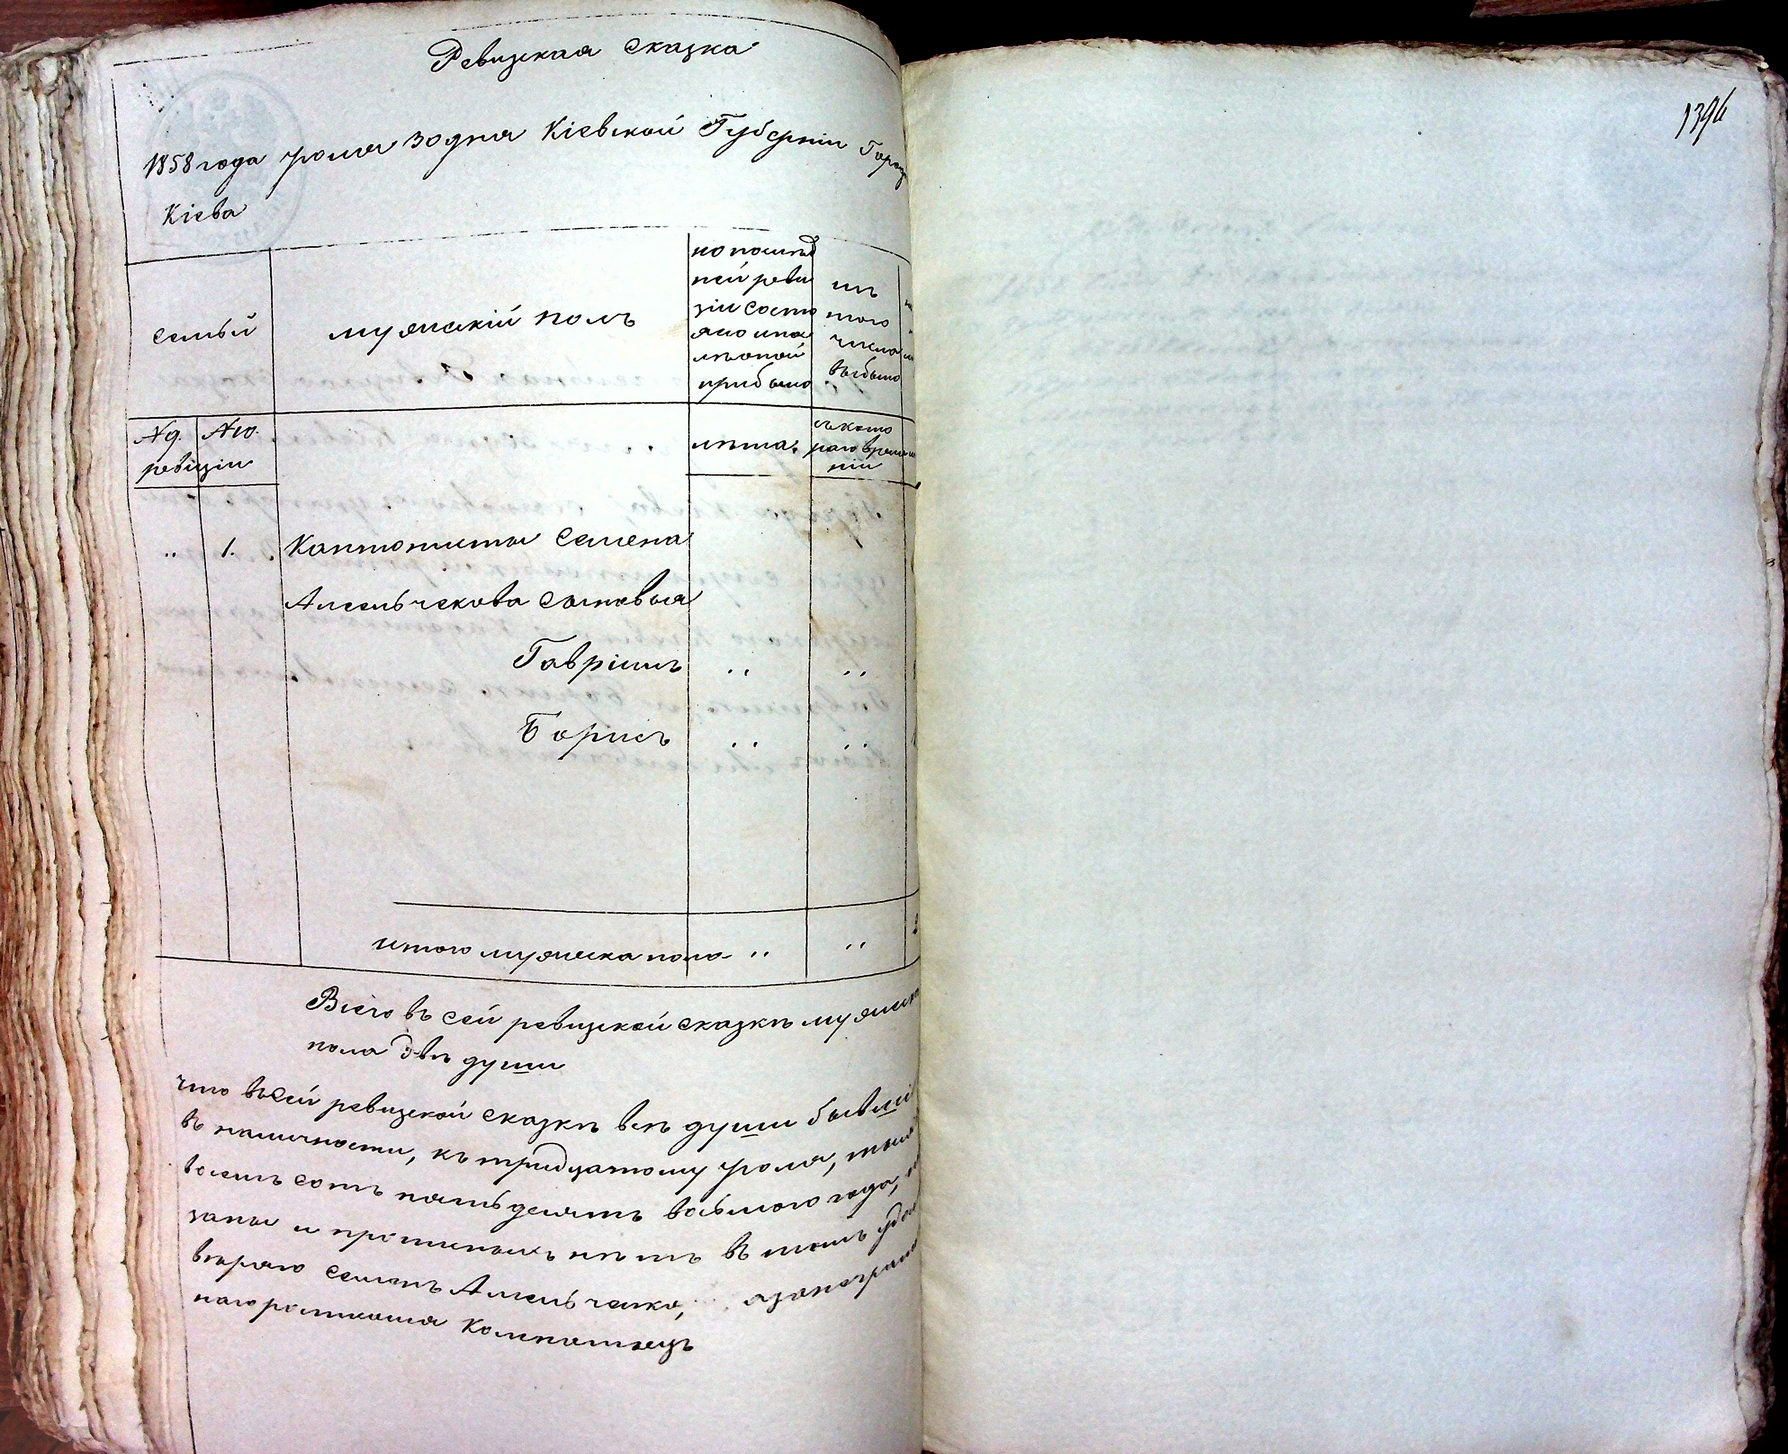 Ревизская сказка
1858 года Іюля 30 дня Кіевской Губерніи Горо
Кіева
семьи
мужескій полъ
по послѣд
ней реви
зіи состо
яло и по
лѣ оной
прибыло
изъ
того
числа
выбыло
№ 9. № 10.
ревізіи
лѣта
съ кото
раго време
ніи
„ 1. Кантониста Семена
Амельчекова сыновья
Гавріилъ „ „
Борисъ „ „
итого мужеска пола „ „ 2
Всего въ сей ревизской сказкѣ мужеска
пола двѣ души
что въ сей ревизской сказкѣ всѣ души бывши
въ наличности, къ тридцатому Іюля, тыся
восемъ сотъ пятьдесятъ восьмого года,
заны и прописныхъ нѣтъ въ томъ удос
вѣряю Семенъ Амельченко, а за неграмо
наго росписался
1394